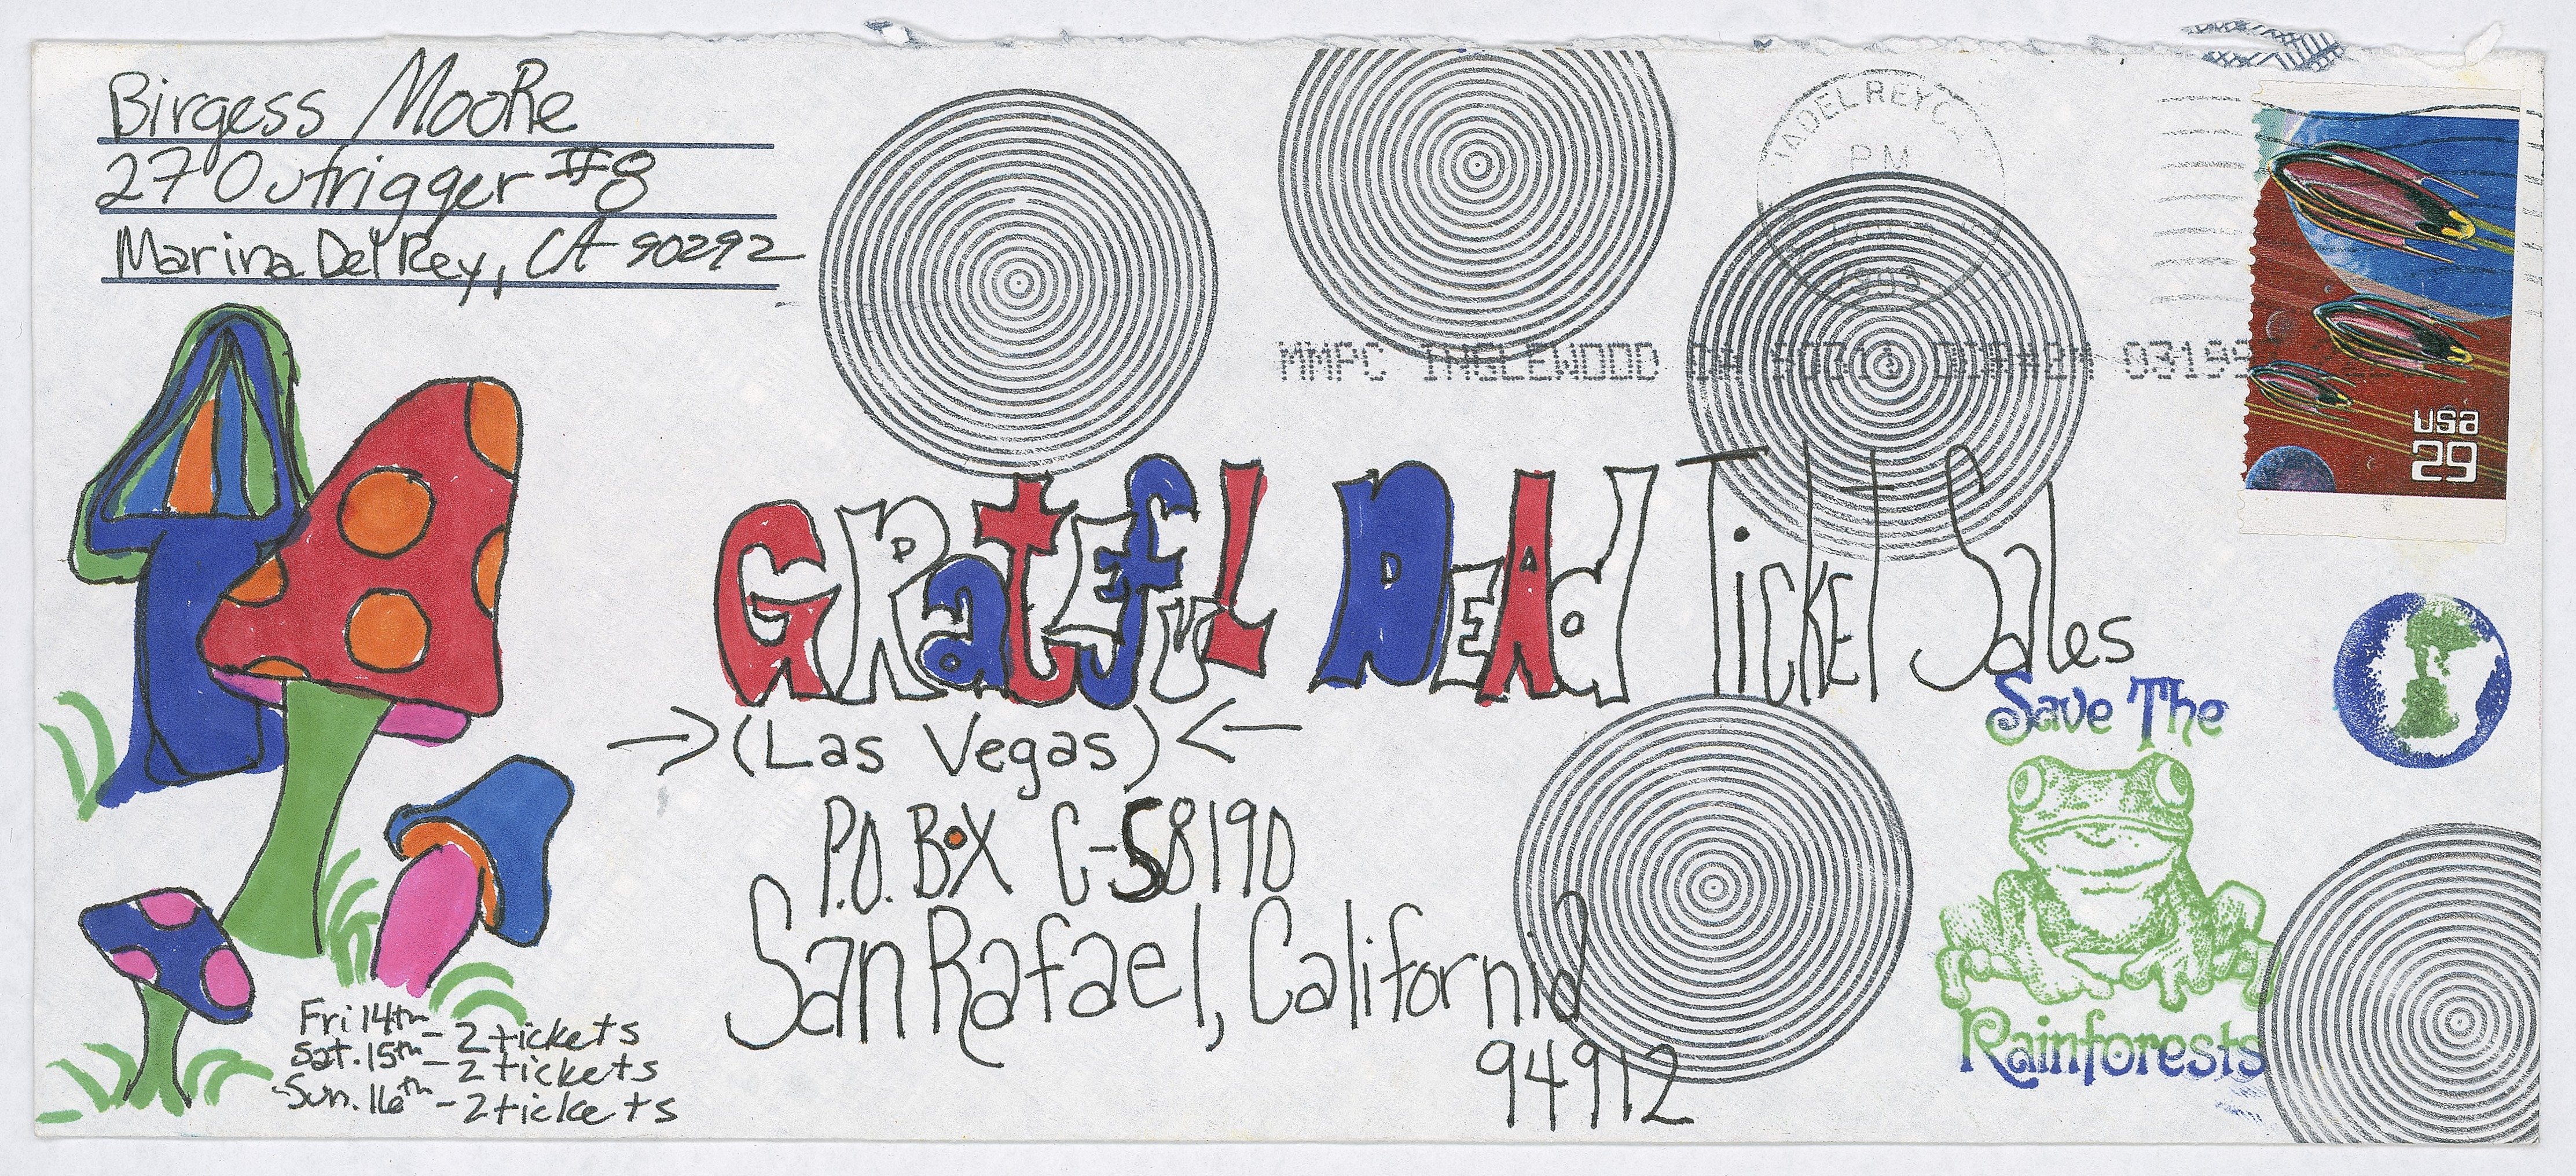 Birgess Moore
27 Outrigger #8
Marina Del Rey, CA 90292
DEL REY CA
PM
1993
MMPC INGLEWOOD
USA
29
Grateful Dead Ticket Sales
→ (Las Vegas) ←
P.O. Box C-S8190
San Rafael, California
94912
Save The
Rainforests
Fri 14th - 2 tickets
Sat. 15th - 2 tickets
Sun. 16th - 2 tickets